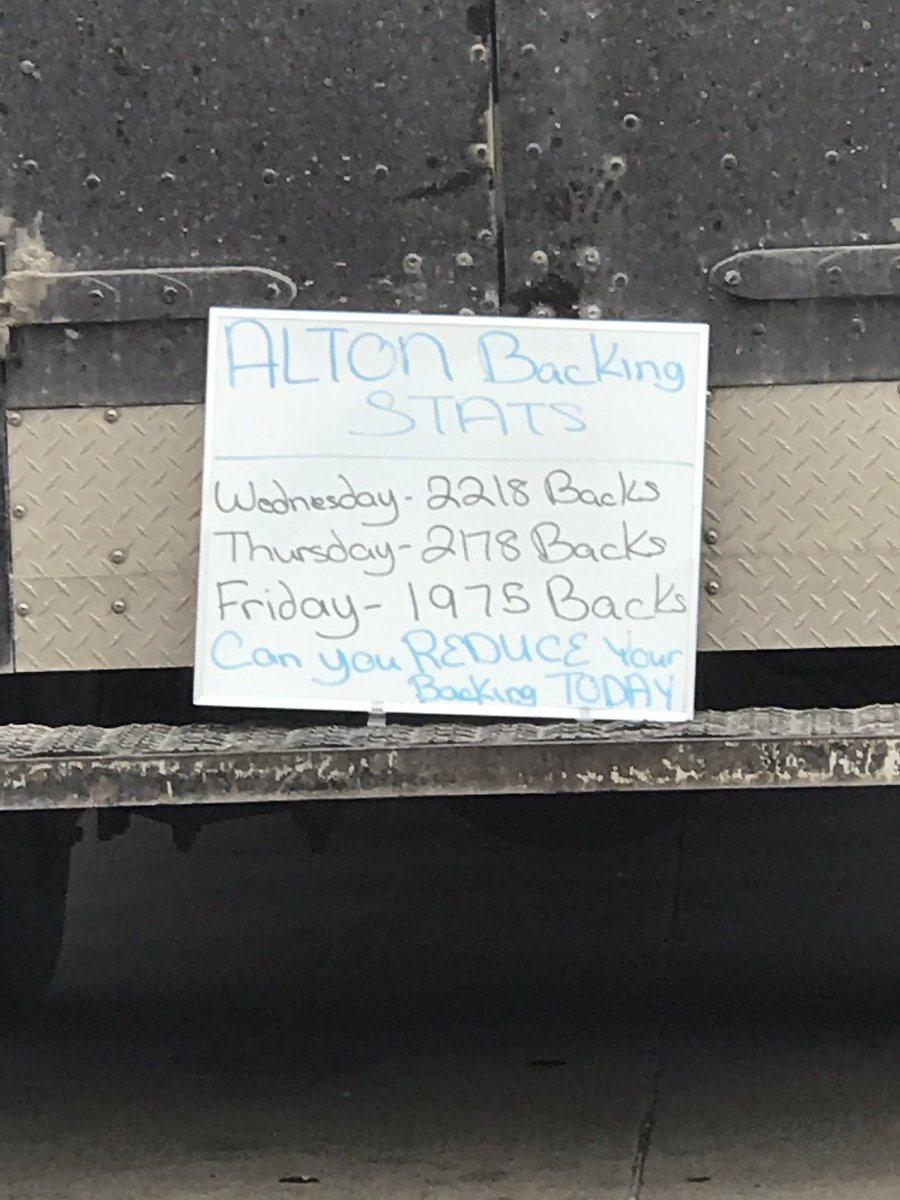 ALTON Backing
STATS
Wednesday- 2218 Backs
Thursday- 2178 Backs
Friday- 1975 Backs
Can you REDUCE Your
Backing TODAY